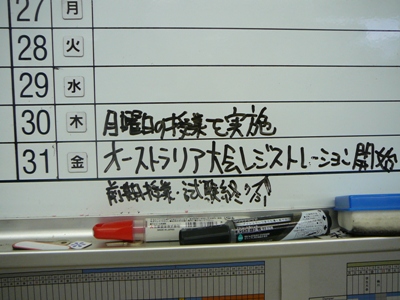 27 月
28 火
29 水
30 木 月曜日の授業を実施
31 金 オーストラリア大会レジストレーション開始
前期授業・試験終り